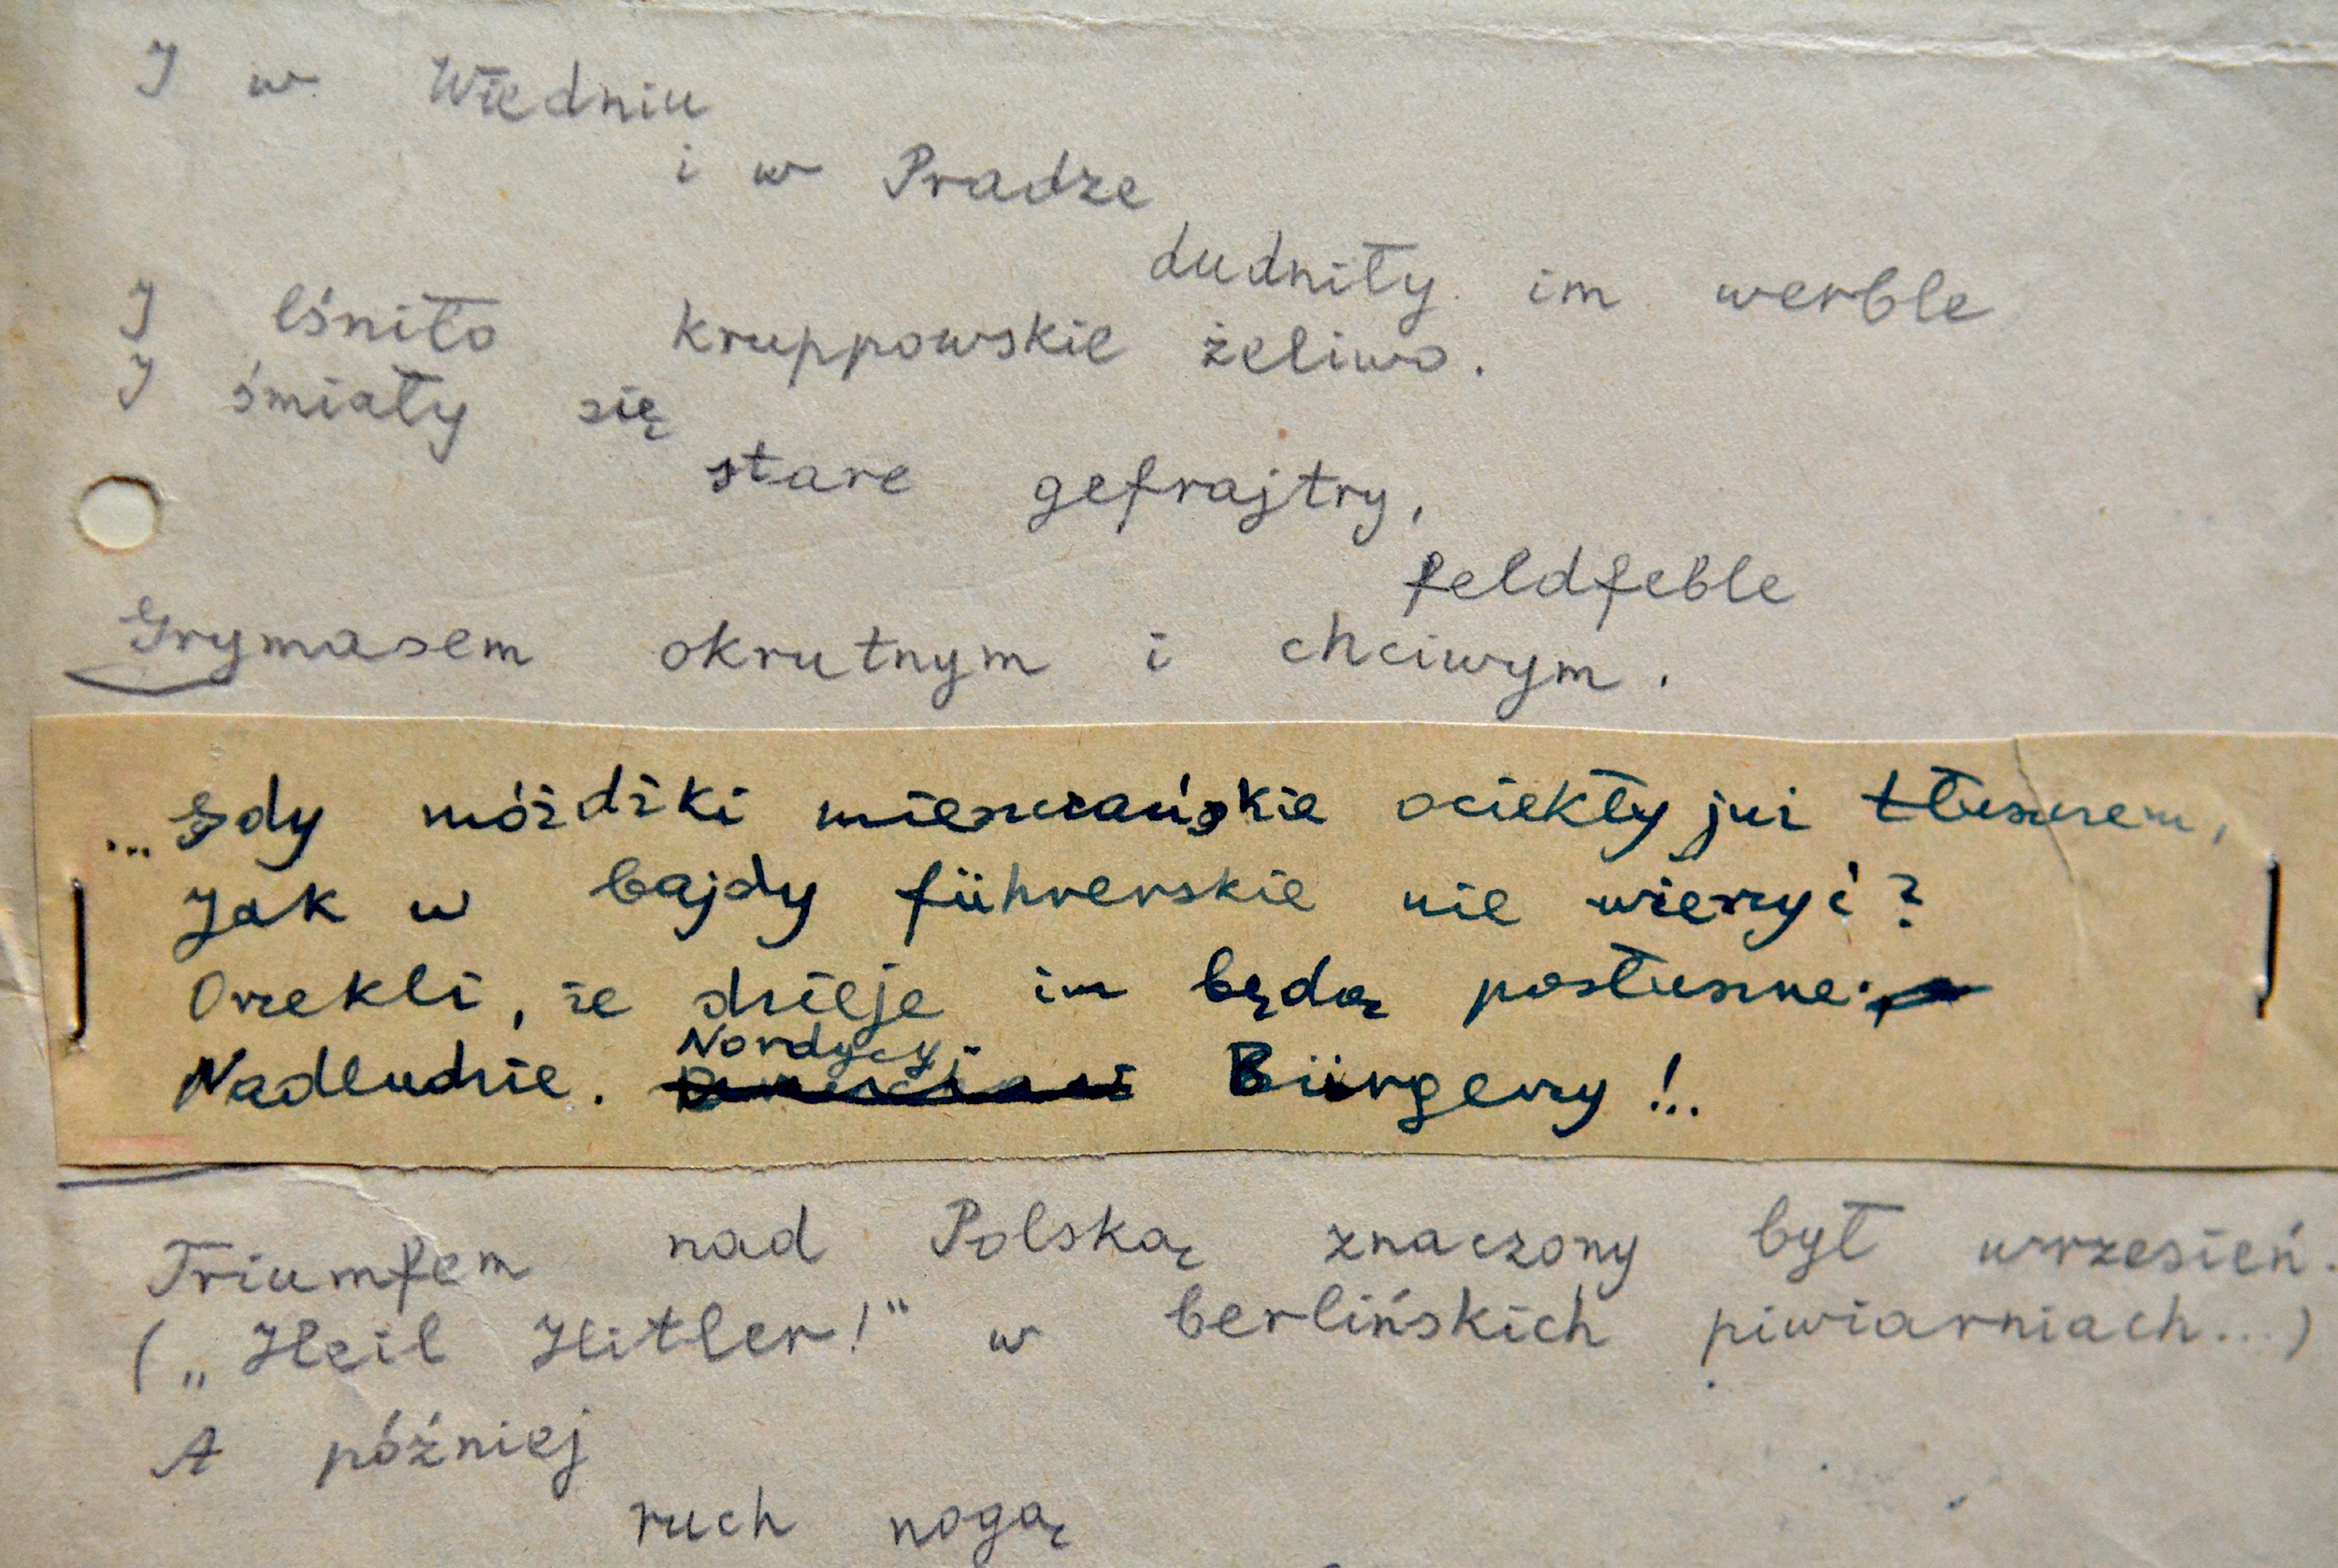 I w Wiedniu
i w Pradze
dudniły im werble
I lśniło kruppowskie żeliwo.
I śmiały się
stare gefrajtry,
feldfeble
Grymasem okrutnym i chciwym.
...Gdy móżdżki mieszczańskie ociekły już tłuszczem,
Jak w bajdy führerskie nie wierzyć?
Orzekli, że dzieje im będą posłuszne.
Nordyccy
Nadludzie. Bürgerzy!..
Triumfem nad Polską znaczony był wrzesień.
(„Heil Hitler!" w berlińskich piwiarniach...)
A później
ruch nogą